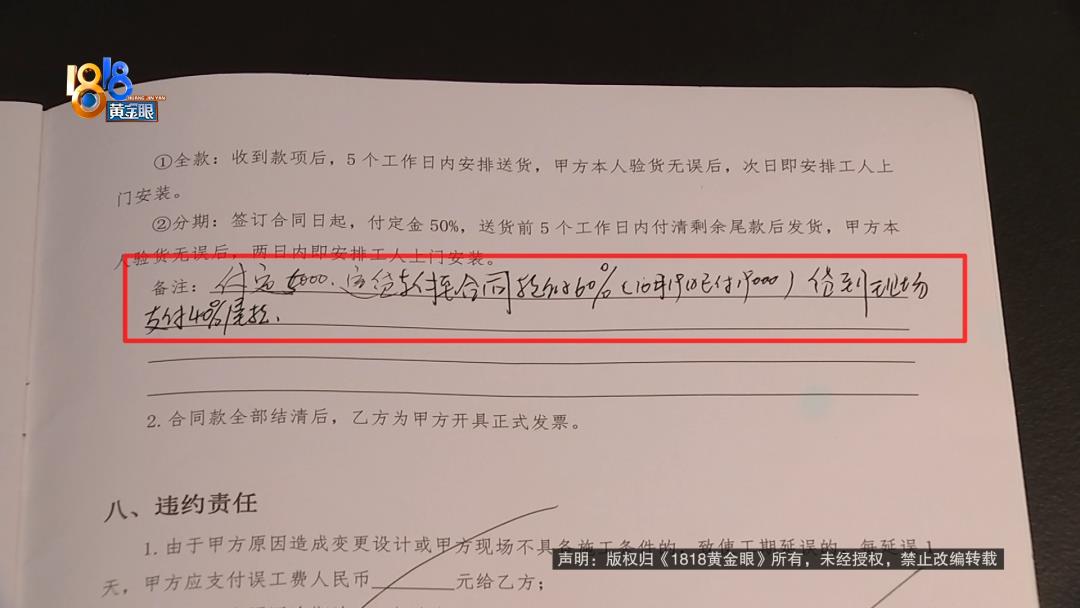 1818
HUANG JIN YAN
黄金眼
①全款：收到款项后，5个工作日内安排送货，甲方本人验货无误后，次日即安排工人上
门安装。
②分期：签订合同日起，付定金50%，送货前5个工作日内付清剩余尾款后发货，甲方本
人验货无误后，两日内即安排工人上门安装。
备注：付定5000.定货款付至合同款的60%（10月19日已付19000）货到现场
支付40%尾款.
2.合同款全部结清后，乙方为甲方开具正式发票。
八、违约责任
1.由于甲方原因造成变更设计或甲方现场不具备施工条件的，致使工期延误的，每延误1
天，甲方应支付误工费人民币________元给乙方；
声明：版权归《1818黄金眼》所有，未经授权，禁止改编转载